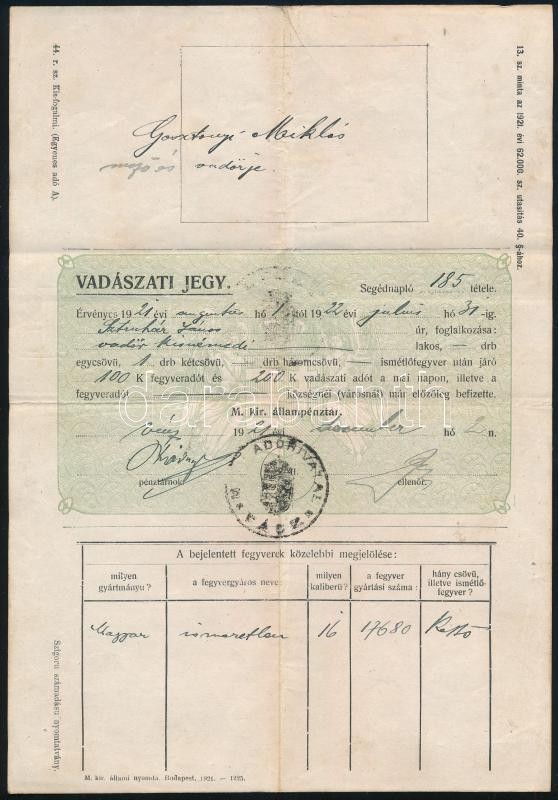 13. sz. minta az 1921. évi 62.000. sz. utasítás 40. §-ához.
44. r. sz. Kisfogalmi. (Egyenes adó A).
Miklós
vadőrje
VADÁSZATI JEGY.
Segédnapló 185 tétele.
Érvényes 1921 évi augusztus hó 1 től 1922 évi julius hó 31-ig.
János úr, foglalkozása:
vadőr kisnémedi lakos, — drb
egycsövü, 1 drb kétcsövü, — drb háromcsövü, — ismétlőfegyver után járó
100 K fegyveradót és 200 K vadászati adót a mai napon, illetve a
fegyveradót községnél (városnál) már előzőleg befizette.
M. kir. állampénztár.
1921 évi december hó 2 n.
pénztárnok. ellenőr.
ADÓHIVATAL
VÁCZ
darabanth
A bejelentett fegyverek közelebbi megjelölése:
milyen gyártmányu? a fegyvergyáros neve: milyen kaliberü? a fegyver gyártási száma: hány csövü, illetve ismétlő-fegyver?
Magyar ismeretlen 16 17680 Kettő
Szigoru számadásu nyomtatvány.
M. kir. állami nyomda. Budapest, 1921. — 1225.